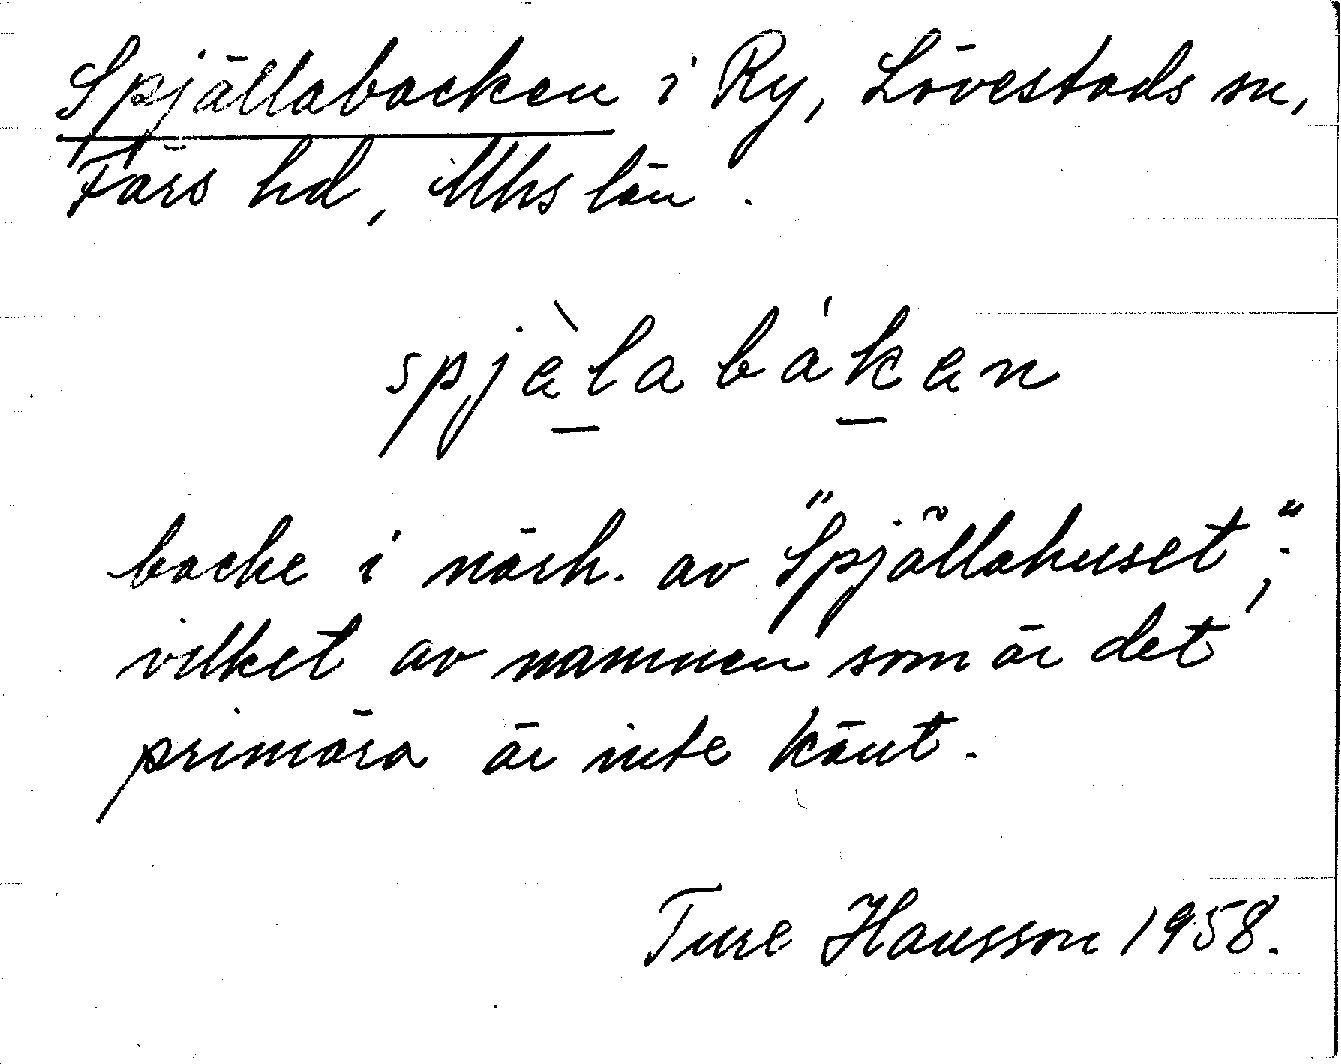 Spjällabacken i Ry, Lövestads sn,
Färs hd, Mhs län.
spjèlabákan
backe i närh. av "Spjällahuset";
vilket av namnen som är det
primära är inte känt.
Ture Hansson 1958.